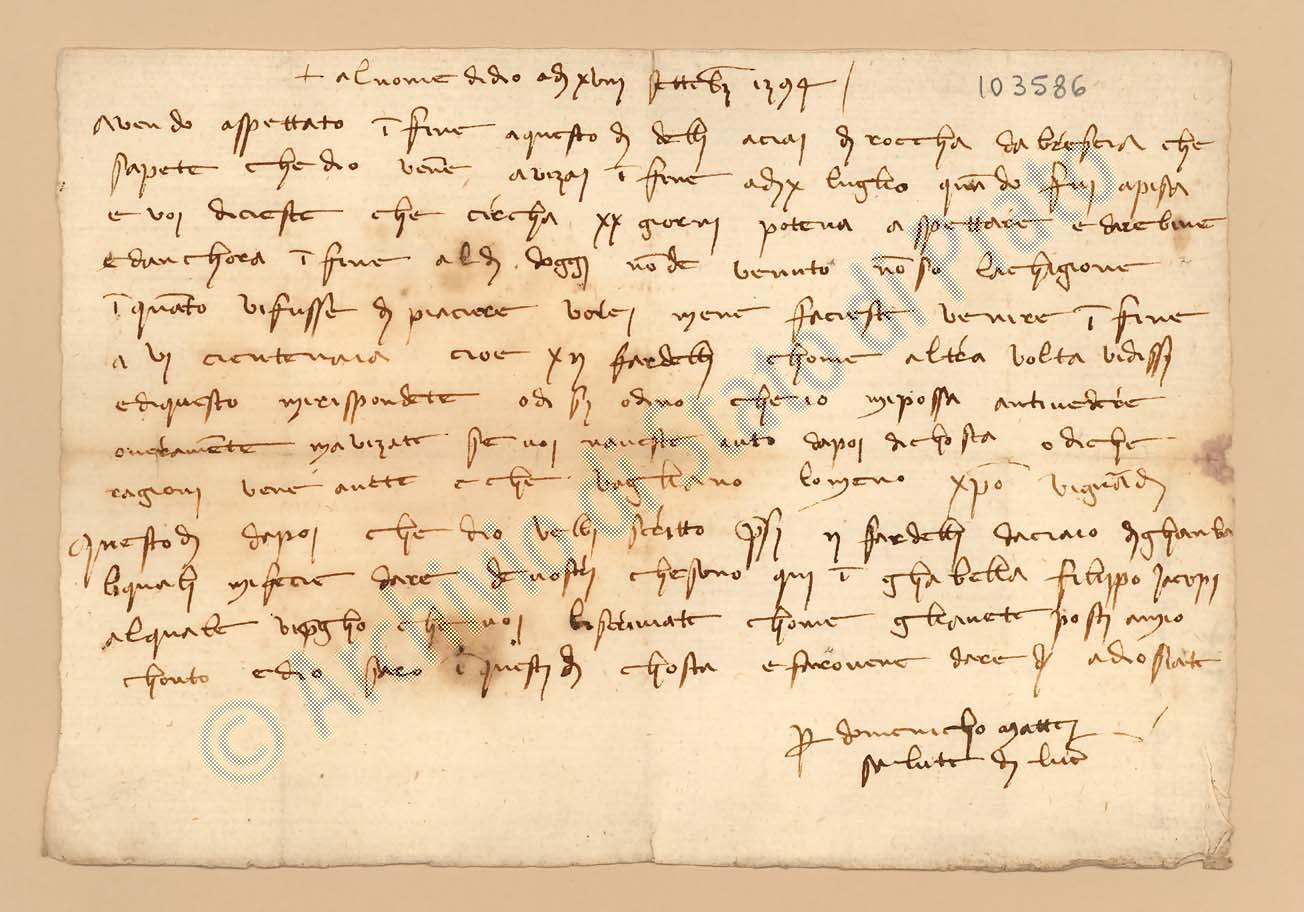 + al nome di dio adi xviii settebr 1394
103586
Avendo aspettato ī fine a questo dì delli aciai di roccha da brescia che
sapete che dio vene avizai ī fine adi x luglio quādo fui a pisa
e voi dicieste che circha xx giorni poteva aspettare ed arebine
ed anchora ī fine al dì doggi nōde venuto nō so lachagione
ī quāto vi fusse di piaciere volei mene facieste venire ī fine
a vi cientenaia cioe xii fardelli chome altra volta vi dissi
e di questo mi rispondete o di si o di no che io mi possa antivedere
overamēte mavizate se voi naveste auto dapoi di chosta o di che
ragioni vene avete e che vagliano lo meno xpō vi guādi
Questo dì dapoi che dio velli scritto psi ii fardelli daciaio di ghanba
li quali mi fecie dare de vostri che sono qui ī ghabella filippo jacopi
al quale vi pgho che voi li scriviate chome gliavete posti a mio
chonto ed io saro ī questi dì chosta e farovene dare a dio siate
p domenicho mattei
salute di luc
© Archivio di Stato di Prato